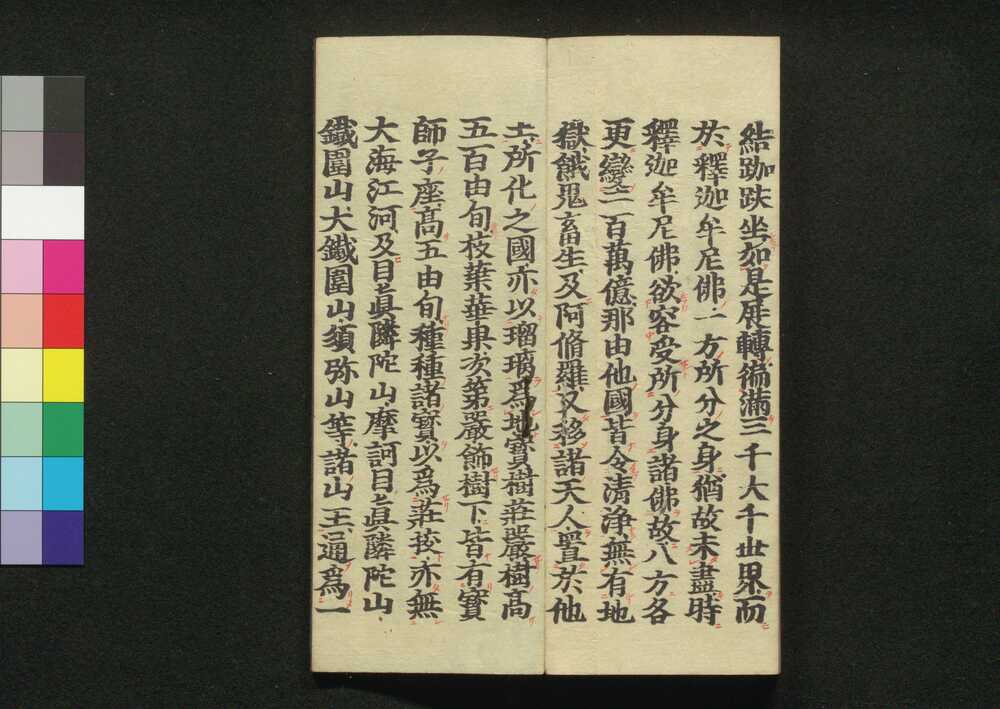 結跏趺坐如是展轉徧滿三千大千世界而
於釋迦牟尼佛一方所分之身猶故未盡時
釋迦牟尼佛欲容受所分身諸佛故八方各
更變二百萬億那由他國皆令清淨無有地
獄餓鬼畜生及阿脩羅又移諸天人置於他
土所化之國亦以瑠璃爲地寳樹莊嚴樹髙
五百由旬枝葉華菓次第嚴飾樹下皆有寳
師子座髙五由旬種種諸寳以爲莊挍亦無
大海江河及目眞隣陀山摩訶目眞隣陀山
鐵圍山大鐵圍山須弥山等諸山王通爲一